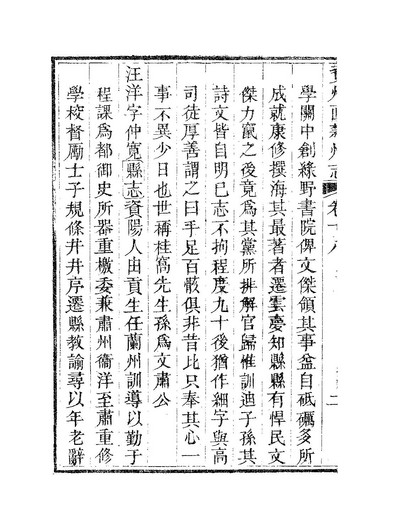 州直隸州志 卷十八 二
學關中創綠野書院俾文傑領其事益自砥礪多所
成就康修撰海其最著者遷雲慶知縣縣有悍民文
傑力竄之後竟爲其黨所排解官歸惟訓迪子孫其
詩文皆自明已志不拘程度九十後猶作細字與高
司徒厚善謂之曰手足百骸俱非昔比只奉其心一
事不異少日也世稱桂窩先生孫爲文肅公
汪洋字仲寬縣志資陽人由貢生任蘭州訓導以勤于
程課爲都御史所器重檄委兼肅州衞洋至肅重修
學校督勵士子規條井井序遷縣教諭尋以年老辭